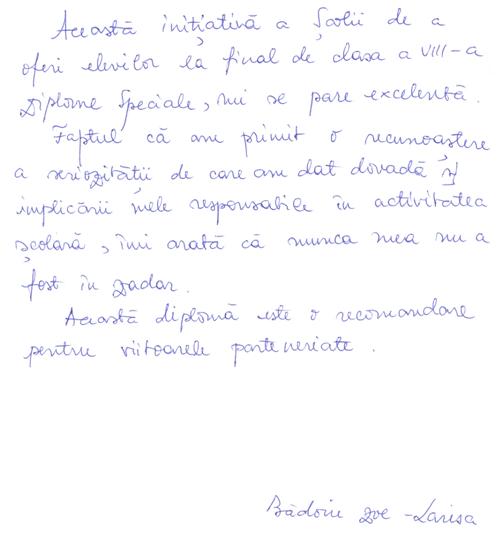 Această inițiativă a Școlii de a
oferi elevilor la final de clasa a VIII-a
Diplome Speciale, mi se pare excelentă.
Faptul că am primit o recunoaștere
a seriozității de care am dat dovadă și
implicării mele responsabile în activitatea
școlară, îmi arată că munca mea nu a
fost în zadar.
Această diplomă este o recomandare
pentru viitoarele parteneriate.
Zoe-Larisa